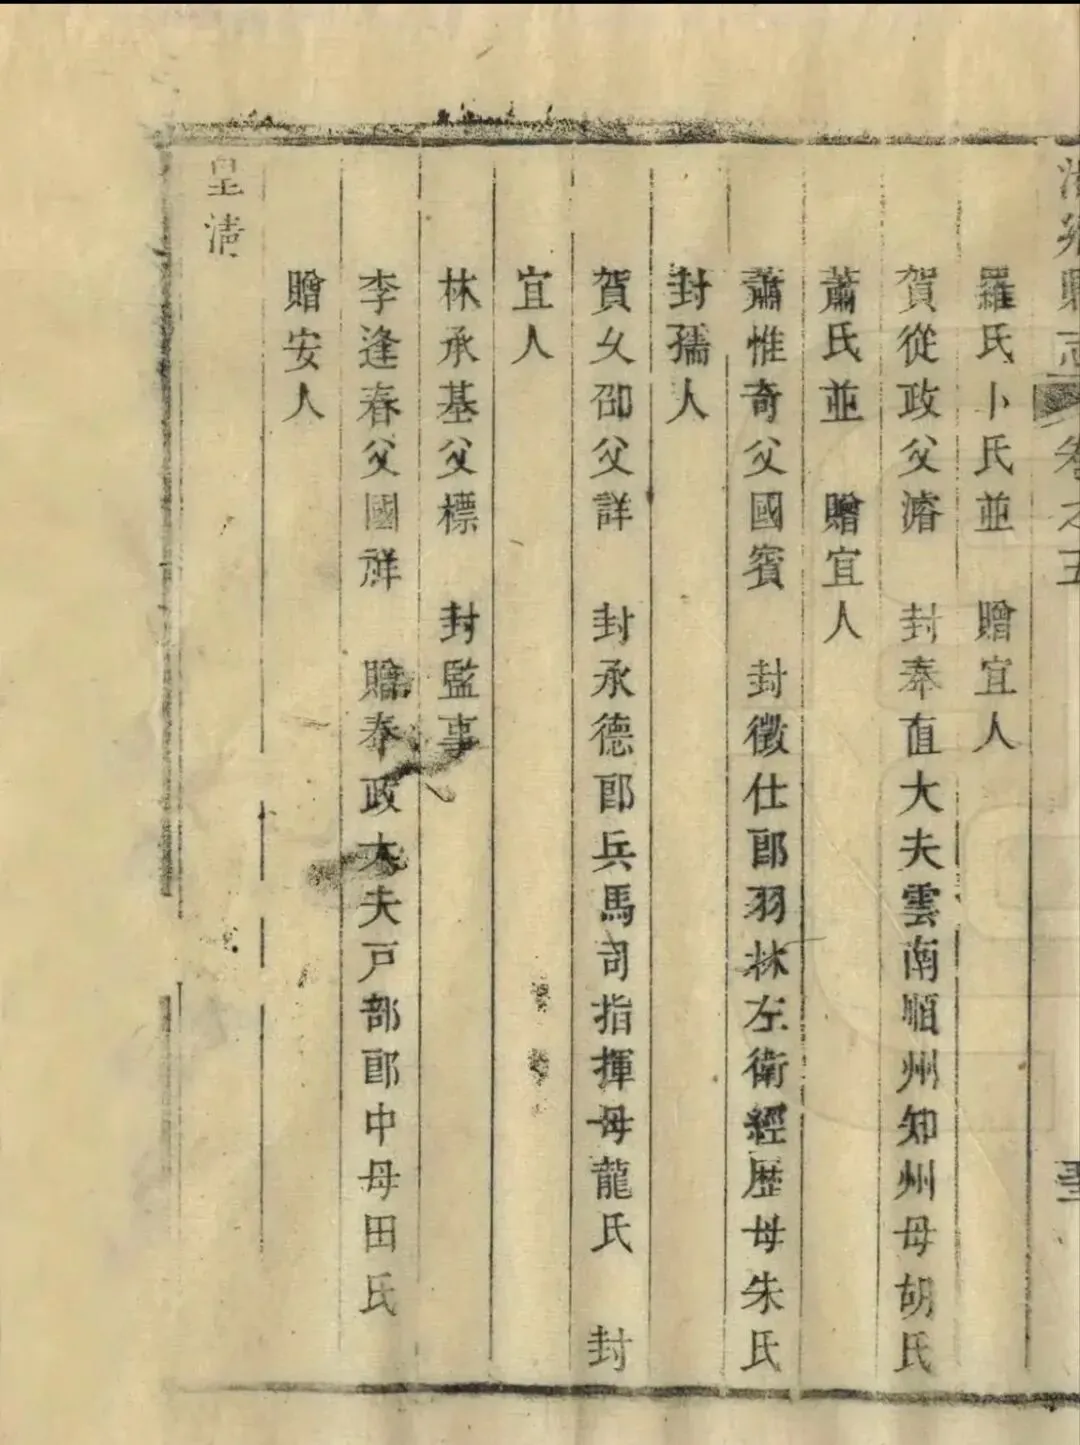 縣志 卷之五
羅氏卜氏並 贈宜人
賀從政父濬 封奉直大夫雲南順州知州母胡氏
蕭氏並 贈宜人
蕭惟奇父國賓 封徵仕郎羽林左衛經歷母朱氏
封孺人
賀攵邵父詳 封承德郎兵馬司指揮母龍氏 封
宜人
林承基父標 封監事
李逢春父國祥 贈奉政大夫戸部郎中母田氏
贈安人
皇清